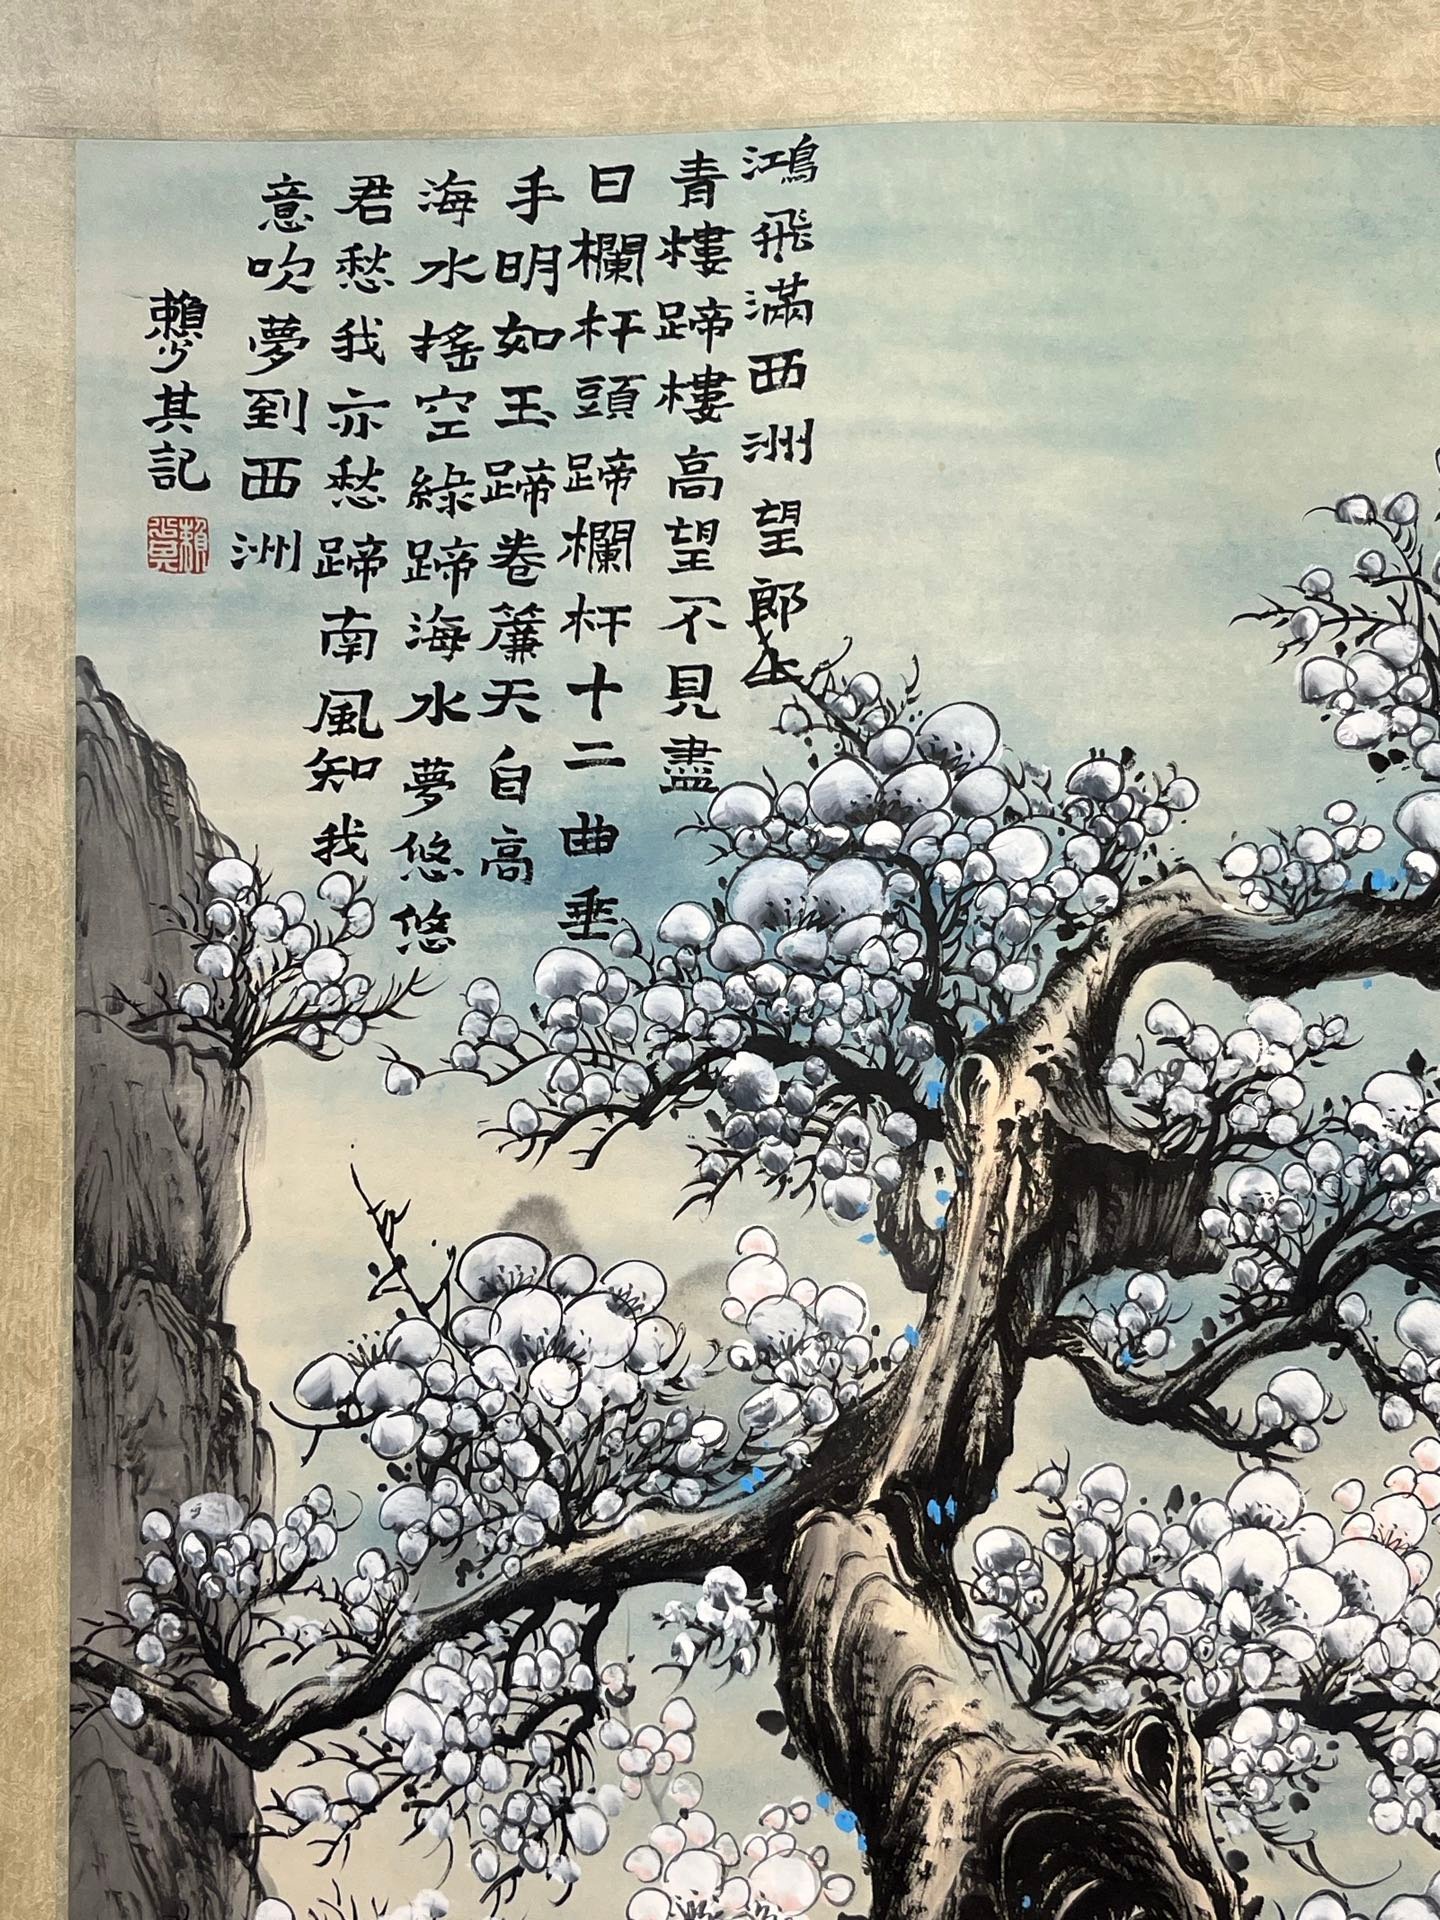 鴻飛滿西洲望郎上
青樓蹄樓高望不見盡
日欄杆頭蹄欄杆十二曲垂
手明如玉蹄卷簾天自高
海水搖空綠蹄海水夢悠悠
君愁我亦愁蹄南風知我
意吹夢到西洲
賴少其記